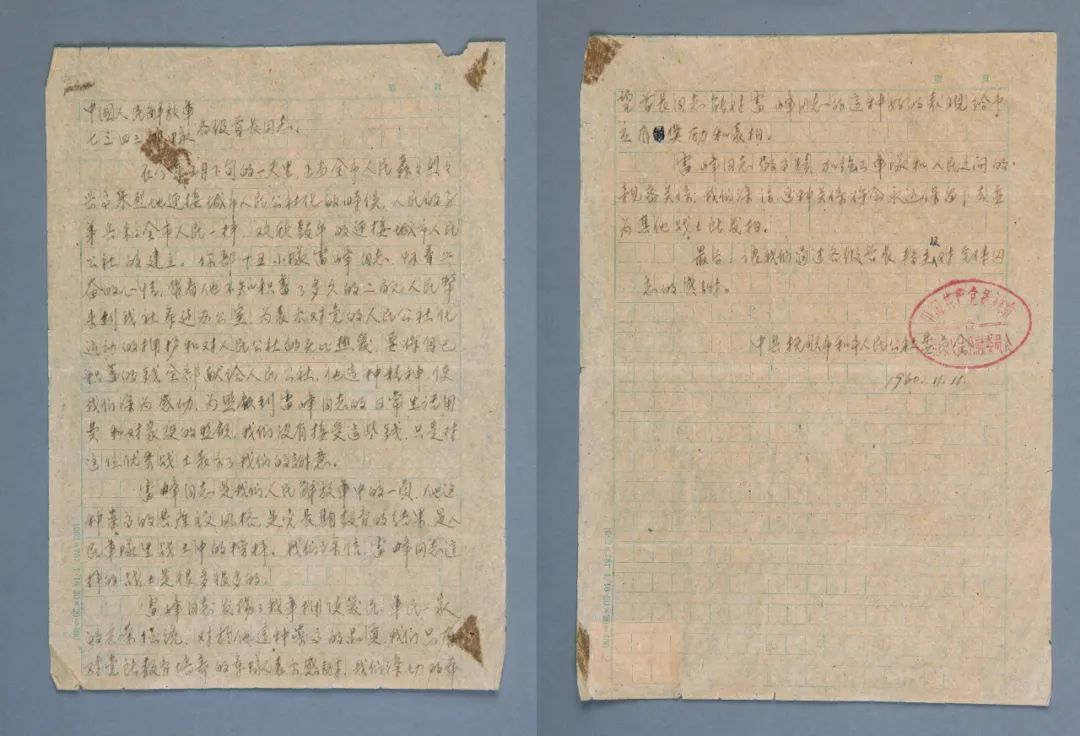 中國人民解放軍
七三四三部隊 各級首長同志:
在今年五月下旬的一天里, 正当全市人民轟轟烈烈
兴高采烈地迎接城市人民公社化的時候, 人民的子
弟兵和全市人民一样, 欢欣鼓午的迎接城市人民
公社的建立, 你部十五小隊雷峰同志怀着兴
奋的心情, 带着他不知积蓄了多久的二百元人民幣
来到我社筹建办公室, 为表示对党的人民公社化
运动的拥护和对人民公社的无比热爱, 要将自己
积蓄的錢全部献給人民公社, 他這种精神, 使
我们深为感动, 为照顧到雷峰同志的日常生活用
費和对家庭的照顧, 我们没有接受這些錢, 只是对
這位优秀战士表示了我们的謝意。
雷峰同志是我们人民解放軍中的一員, 他這
种崇高的共產主义风格, 是党長期教育的结果, 是人
民軍隊里战士中的榜样。我们深信, 雷峰同志這
样的战士是很多很多的。
雷峰同志发揚了我軍拥政爱民, 軍民一家
的光荣传统, 对於他這种崇高的品質, 我们只有
对党的教育培养的部隊表示感謝, 我们深切的希
望首長同志能对雷峰同志的這种好的表現給予
应有的奖励和表揚。
雷峰同志的事蹟加強了軍隊和人民之间的
親密关係, 我们深信這种关係將会永远保留下去並
为其他战士所发揚。
最后, 让我们通过各級首長轉达对全体同
志的感謝。
中共撫順市和平人民公社委員会
1960.11.11.